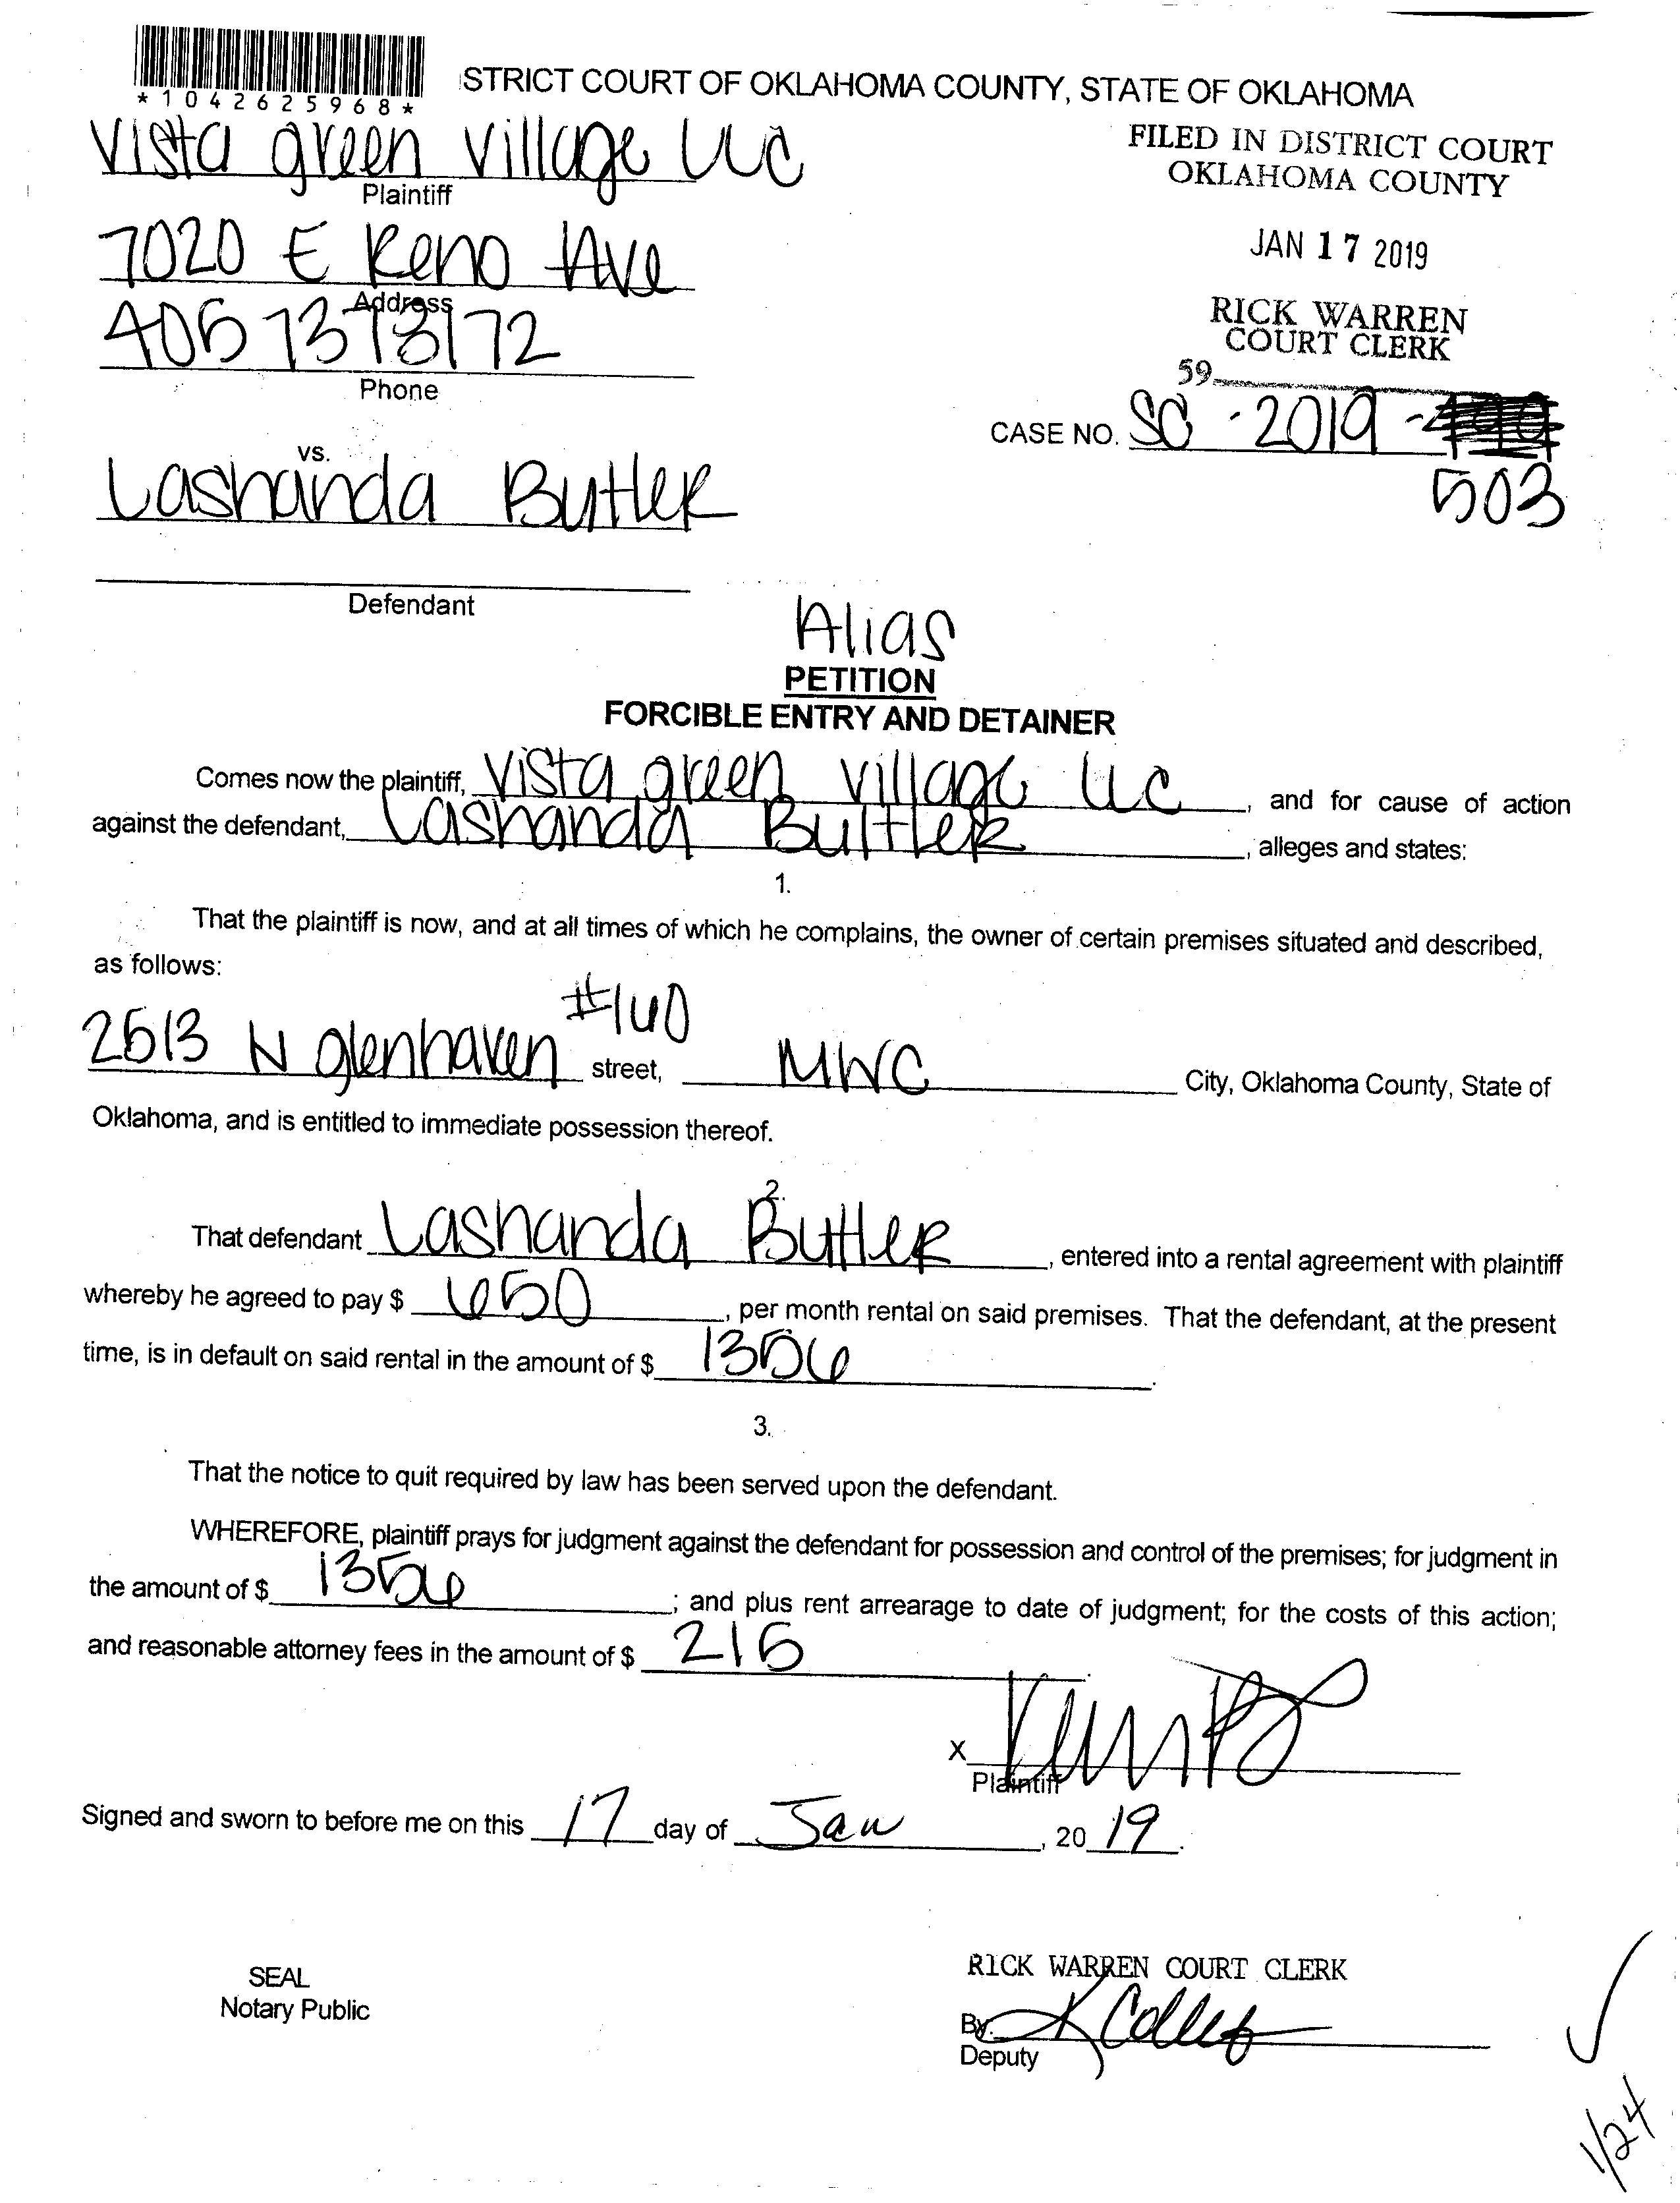 *1042625968*
STRICT COURT OF OKLAHOMA COUNTY, STATE OF OKLAHOMA
Vista green village LLC
Plaintiff
FILED IN DISTRICT COURT
OKLAHOMA COUNTY
7020 E Reno Ave
Address
JAN 17 2019
405 7373172
Phone
RICK WARREN
COURT CLERK
59
CASE NO. SC - 2019 -
503
vs.
Lashanda Butler
Defendant
Alias
PETITION
FORCIBLE ENTRY AND DETAINER
Comes now the plaintiff, Vista green village LLC, and for cause of action
against the defendant, Lashanda Butler, alleges and states:
1.
That the plaintiff is now, and at all times of which he complains, the owner of certain premises situated and described,
as follows:
#160
2513 N glenhaven street, MWC City, Oklahoma County, State of
Oklahoma, and is entitled to immediate possession thereof.
2.
That defendant Lashanda Butler, entered into a rental agreement with plaintiff
whereby he agreed to pay $ 650, per month rental on said premises. That the defendant, at the present
time, is in default on said rental in the amount of $ 1356.
3.
That the notice to quit required by law has been served upon the defendant.
WHEREFORE, plaintiff prays for judgment against the defendant for possession and control of the premises; for judgment in
the amount of $ 1356; and plus rent arrearage to date of judgment; for the costs of this action;
and reasonable attorney fees in the amount of $ 215.
X
Plaintiff
Signed and sworn to before me on this 17 day of Jan, 20 19.
SEAL
Notary Public
RICK WARREN COURT CLERK
By: K Collet
Deputy
1/24